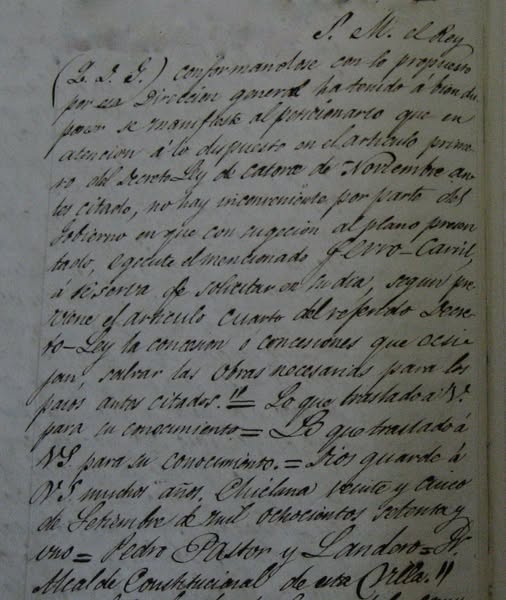 S. M. el Rey
(Q. D. G.) conformandose con lo propuesto
por esa Direccion general ha tenido á bien dis-
poner se manifieste al peticionario que en
atencion á lo dispuesto en el articulo prime-
ro del Decreto-Ley de catorce de Noviembre an-
tes citado, no hay inconveniente por parte del
Gobierno en que con sugecion al plano presen-
tado, egecute el mencionado Ferro-Carril,
á reserva de solicitar en su dia, segun pre-
viene el articulo cuarto del referido Decre-
to-Ley la concesion o concesiones que ecsi-
jan, salvar las obras necesarias para los
pasos antes citados." = Lo que traslado á V.
para su conocimiento = Lo que traslado á
V.S. para su conocimiento. = Dios guarde á
V.S muchos años. Chiclana veinte y cinco
de Setiembre de mil ochocientos setenta y
uno = Pedro Pastor y Landero = Sr.
Alcalde Constitucional de esta Villa."